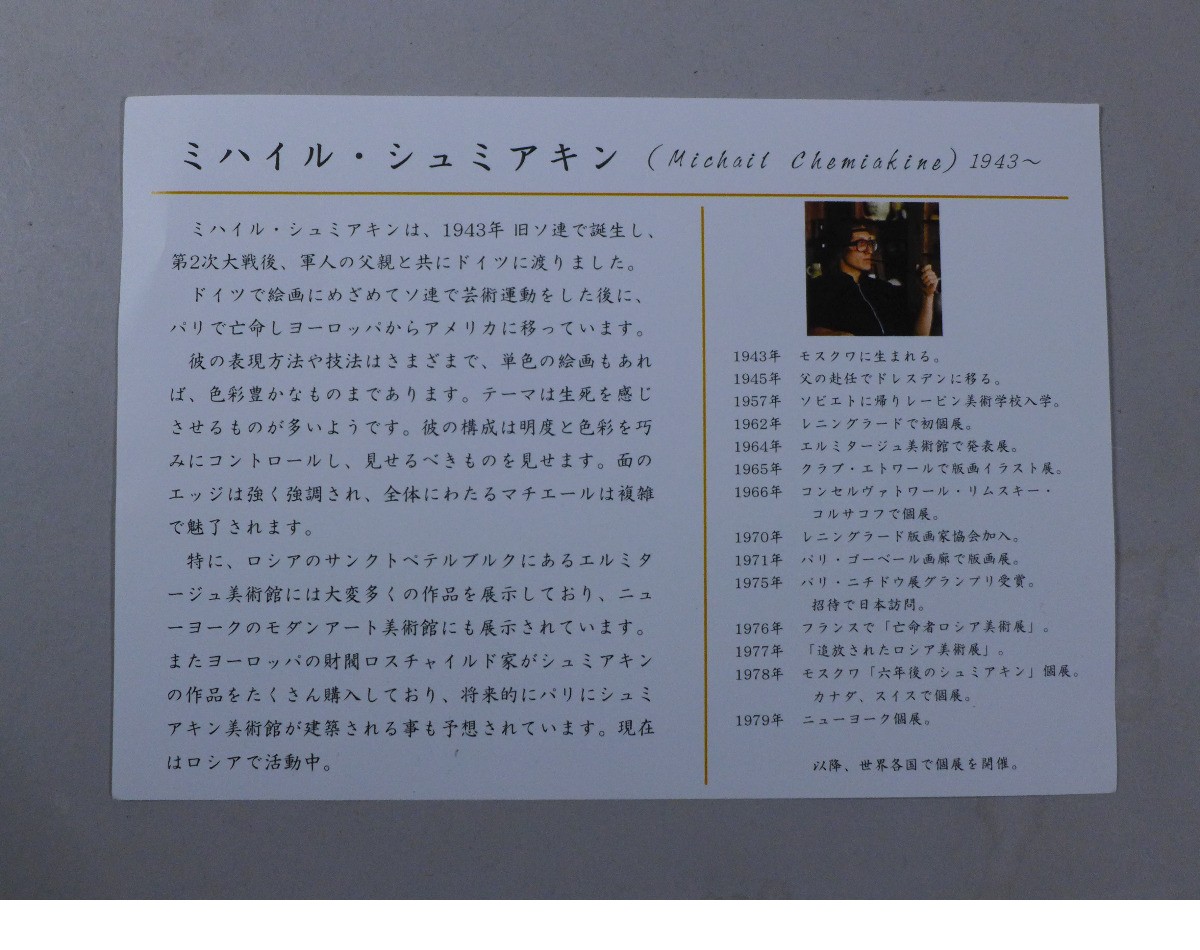 ミハイル・シュミアキン (Michail Chemiakine) 1943〜
ミハイル・シュミアキンは、1943年 旧ソ連で誕生し、
第2次大戦後、軍人の父親と共にドイツに渡りました。
ドイツで絵画にめざめてソ連で芸術運動をした後に、
パリで亡命しヨーロッパからアメリカに移っています。
彼の表現方法や技法はさまざまで、単色の絵画もあれ
ば、色彩豊かなものまであります。テーマは生死を感じ
させるものが多いようです。彼の構成は明度と色彩を巧
みにコントロールし、見せるべきものを見せます。面の
エッジは強く強調され、全体にわたるマチエールは複雑
で魅了されます。
特に、ロシアのサンクトペテルブルクにあるエルミタ
ージュ美術館には大変多くの作品を展示しており、ニュ
ーヨークのモダンアート美術館にも展示されています。
またヨーロッパの財閥ロスチャイルド家がシュミアキン
の作品をたくさん購入しており、将来的にパリにシュミ
アキン美術館が建築される事も予想されています。現在
はロシアで活動中。
1943年 モスクワに生まれる。
1945年 父の赴任でドレスデンに移る。
1957年 ソビエトに帰りレーピン美術学校入学。
1962年 レニングラードで初個展。
1964年 エルミタージュ美術館で発表展。
1965年 クラブ・エトワールで版画イラスト展。
1966年 コンセルヴァトワール・リムスキー・
コルサコフで個展。
1970年 レニングラード版画家協会加入。
1971年 パリ・ゴーベール画廊で版画展。
1975年 パリ・ニチドウ展グランプリ受賞。
招待で日本訪問。
1976年 フランスで「亡命者ロシア美術展」。
1977年 「追放されたロシア美術展」。
1978年 モスクワ「六年後のシュミアキン」個展。
カナダ、スイスで個展。
1979年 ニューヨーク個展。
以降、世界各国で個展を開催。